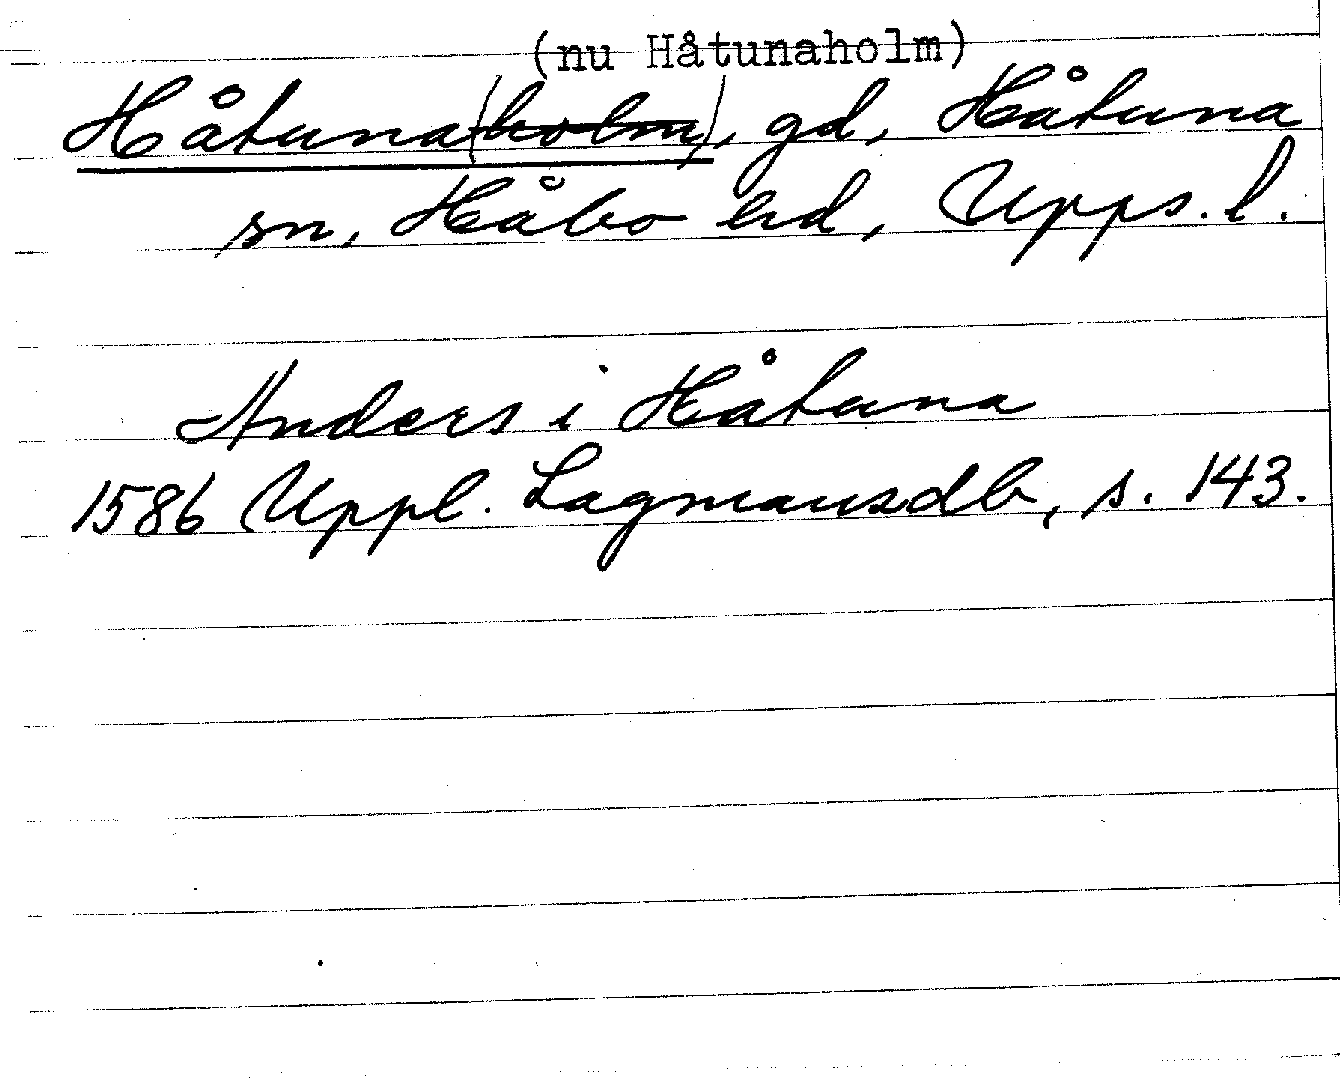 (nu Håtunaholm)
Håtuna(holm), gd, Håtuna
sn, Håbo hd, Upps. l.
Anders i Håtuna
1586 Uppl. Lagmansdb, s. 143.